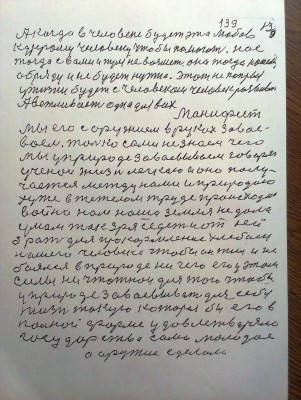 139
А когда в человеке будет эта Любовь
к другому человеку чтобы помогать. нас
тогда с вами и туж не возмет она тогда
обряду и не будет нужта. Этот не
у жизни будет с Человеком человек
А ветливает одна для вас
Манифест
Мы его с оружием в руках завае-
ваем. только сами не знаем чего
мы у природе заваевываем говорят
ученои жизн легкаю а оно полу-
чается между нами и природою
хуже в тежелом труде происходит
война нам наша земля не дала
умом так зря едят от ней
брать для прокормление хлеба
нашего человека чтобы он жил и не
баялся в природе ни чего его у этом
силы ни чтожнои для того чтобы
у природе заваевывать для себя
жизн такую которая бы его в
полной форме удовлетвучяло
государства сама молодая
а оружие сделала